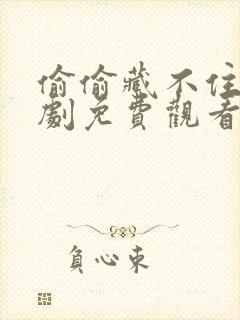 偷偷藏不住
劇免費觀看
負心東